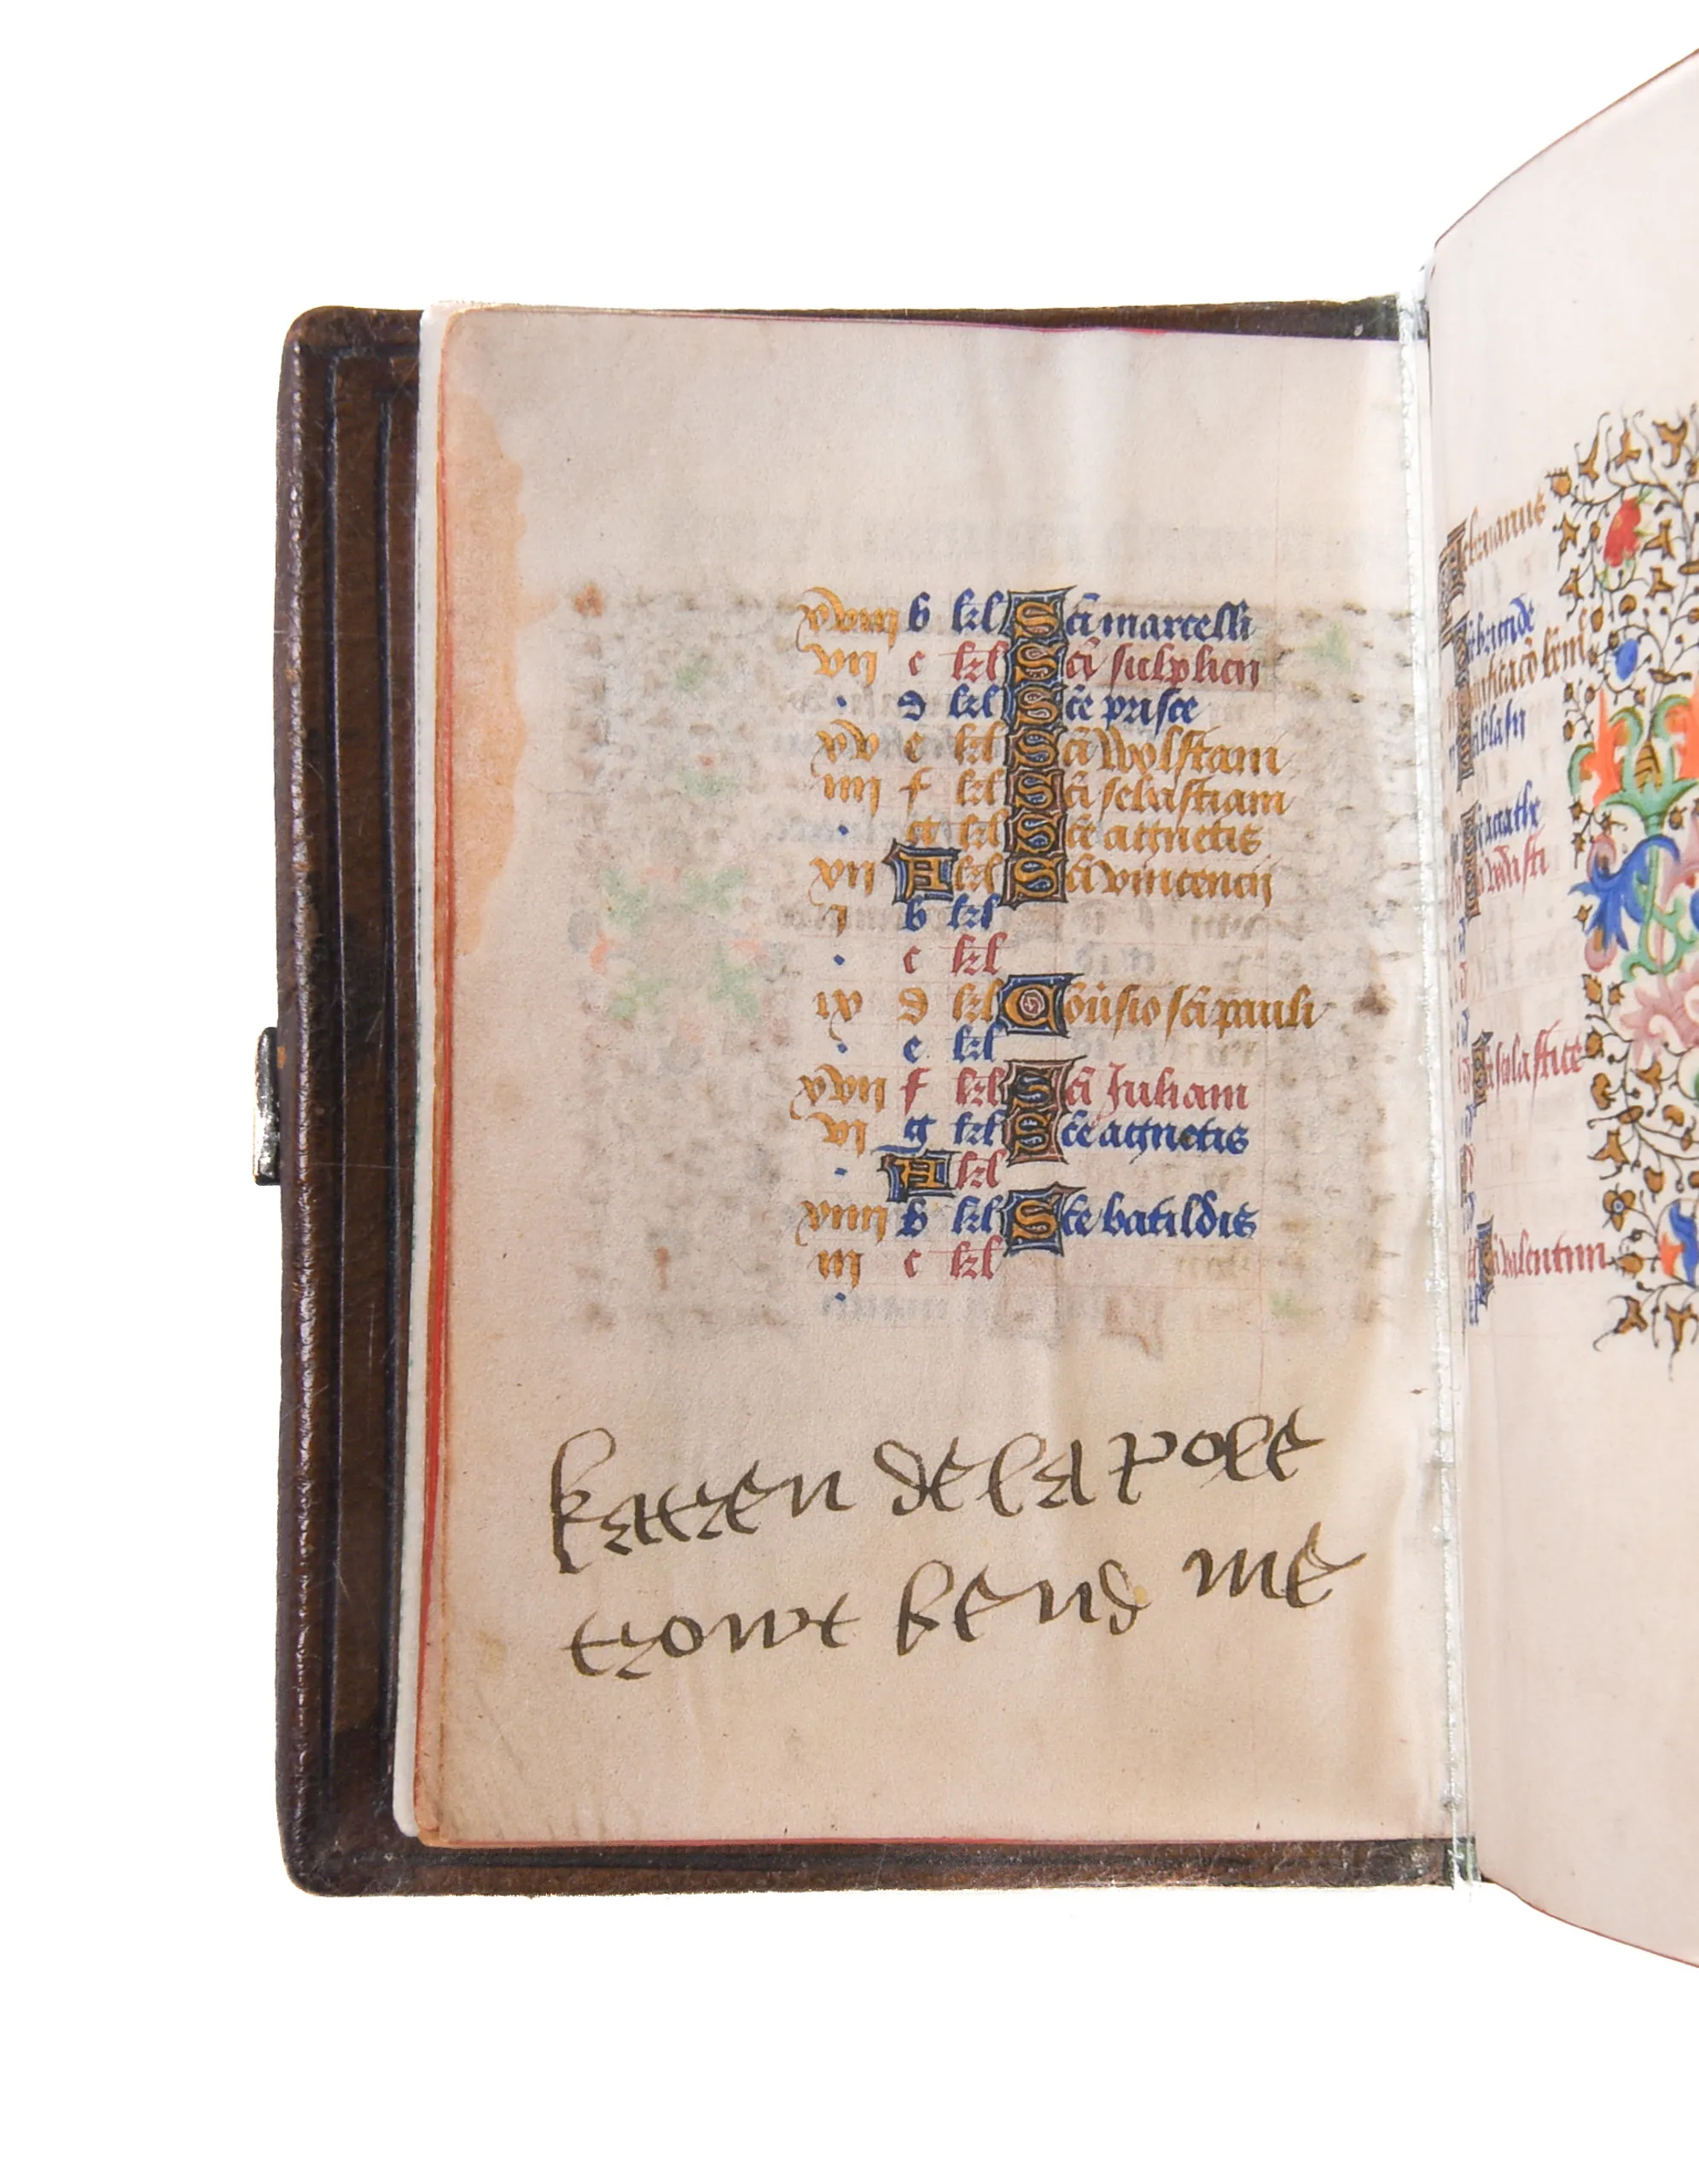 xviii b kl Sci marcelli
vii c kl Sci sulplicii
. d kl Sce prisce
xv e kl Sci Wolstani
iiii f kl Sci sebastiani
. g kl Sce agnetis
xii A kl Sci vincencii
i b kl
. c kl
ix d kl Cōūsio sci pauli
. e kl
xvii f kl Sci Juliani
vi g kl Sce agnetis
. A kl
xiiii b kl Sce batildis
iii c kl
.
katren de la pole
trowt kend me
februarius
brigide
blasii
agathe
scolastice
valentini